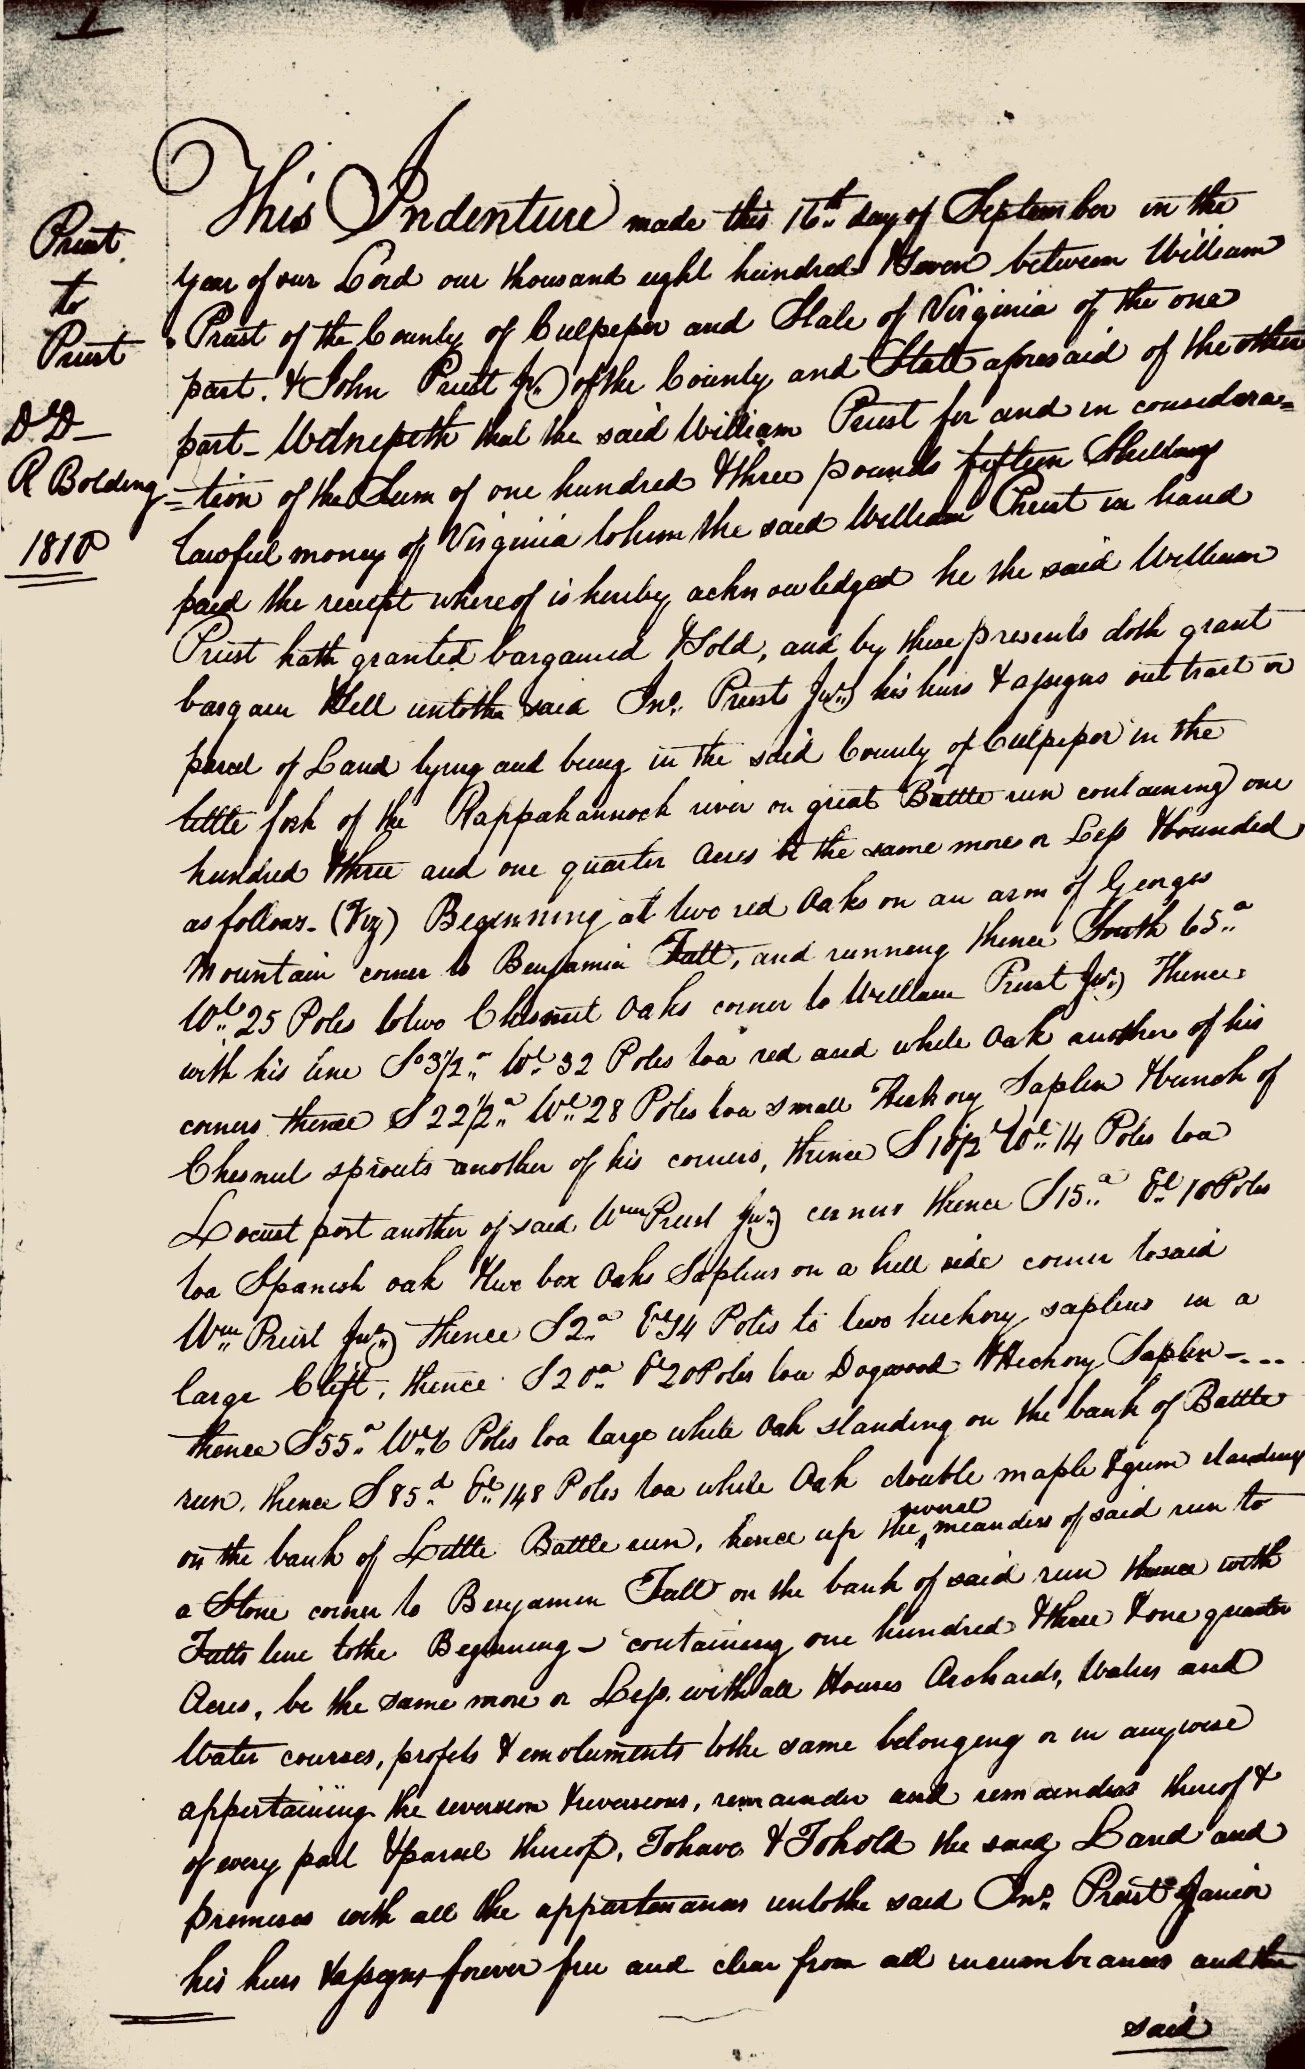 1
This Indenture made this 16th day of September in the
Priest
year of our Lord one thousand eight hundred & Seven between William
to
Priest of the County of Culpeper and State of Virginia of the one
Priest
part. & John Priest Jr. of the County and State aforesaid of the other
DD
part – Witnesseth that the said William Priest for and in considera=
R Bolding
=tion of the Sum of one hundred & three pounds fifteen Shillings
1810
lawful money of Virginia to him the said William Priest in hand
paid the receipt whereof is hereby acknowledged he the said William
Priest hath granted bargained & Sold, and by these presents doth grant
bargain & Sell unto the said Jno. Priest Jur. his heirs & assigns one tract or
parcel of Land lying and being in the said County of Culpeper in the
little fork of the Rappahannock river on great Battle run containing one
hundred & three and one quarter acres be the same more or Less & bounded
as follows – (Viz) Beginning at two red Oaks on an arm of Georges
Mountain corner to Benjamin Fall, and running thence South 65.d
Wt. 25 Poles to two Chesnut Oaks corner to William Priest Jur. Thence
with his line So 3 1/2.d Wt. 32 Poles to a red and white Oak another of his
corners thence S 22 1/2.d Wt. 28 Poles to a small Hickory Saplin & bunch of
Chesnut sprouts another of his corners, thence S 10 1/2 Wt. 14 Poles to a
Locust post another of said Wm Priest Jur. corners thence S 15.d Et. 10 Poles
to a Spanish oak & two box Oaks Saplins on a hill side corner to said
Wm Priest Jur. thence S 2.d Et 34 Poles to two hickory saplins in a
large Clift, thence S 20.d Et 20 Poles to a Dogwood & Hickory Saplin – ...
thence S 55.d Wt 6 Poles to a large white Oak standing on the bank of Battle
run, thence S 85.d Et. 148 Poles to a white Oak double maple & gum standing
on the bank of Little Battle run, hence up the several meanders of said run to
a Stone corner to Benjamin Fall on the bank of said run thence with
Falls line to the Beginning – containing one hundred & three & one quarter
Acres, be the same more or Less. with all Houses Orchards, Waters and
Water courses, profets & emoluments to the same belonging or in any wise
appertaining the reversion & reversions, remainder and remainders thereof &
of every part & parcel thereof, To have & To hold the said Land and
premises with all the appurtenances unto the said Jno. Priest Junior
his heirs & assigns forever free and clear from all incumbrances and the
said